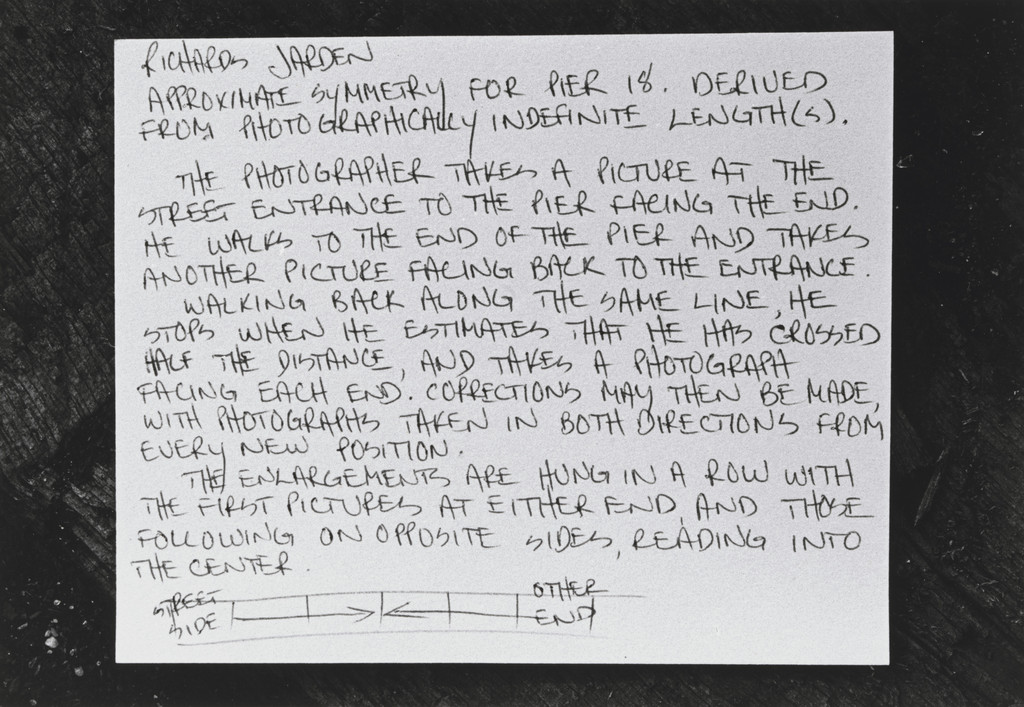 RICHARDS JARDEN
APPROXIMATE SYMMETRY FOR PIER 18. DERIVED
FROM PHOTOGRAPHICALLY INDEFINITE LENGTH(S).
THE PHOTOGRAPHER TAKES A PICTURE AT THE
STREET ENTRANCE TO THE PIER FACING THE END.
HE WALKS TO THE END OF THE PIER AND TAKES
ANOTHER PICTURE FACING BACK TO THE ENTRANCE.
WALKING BACK ALONG THE SAME LINE, HE
STOPS WHEN HE ESTIMATES THAT HE HAS CROSSED
HALF THE DISTANCE, AND TAKES A PHOTOGRAPH
FACING EACH END. CORRECTIONS MAY THEN BE MADE,
WITH PHOTOGRAPHS TAKEN IN BOTH DIRECTIONS FROM
EVERY NEW POSITION.
THE ENLARGEMENTS ARE HUNG IN A ROW WITH
THE FIRST PICTURES AT EITHER END, AND THOSE
FOLLOWING ON OPPOSITE SIDES, READING INTO
THE CENTER.
STREET SIDE
OTHER END